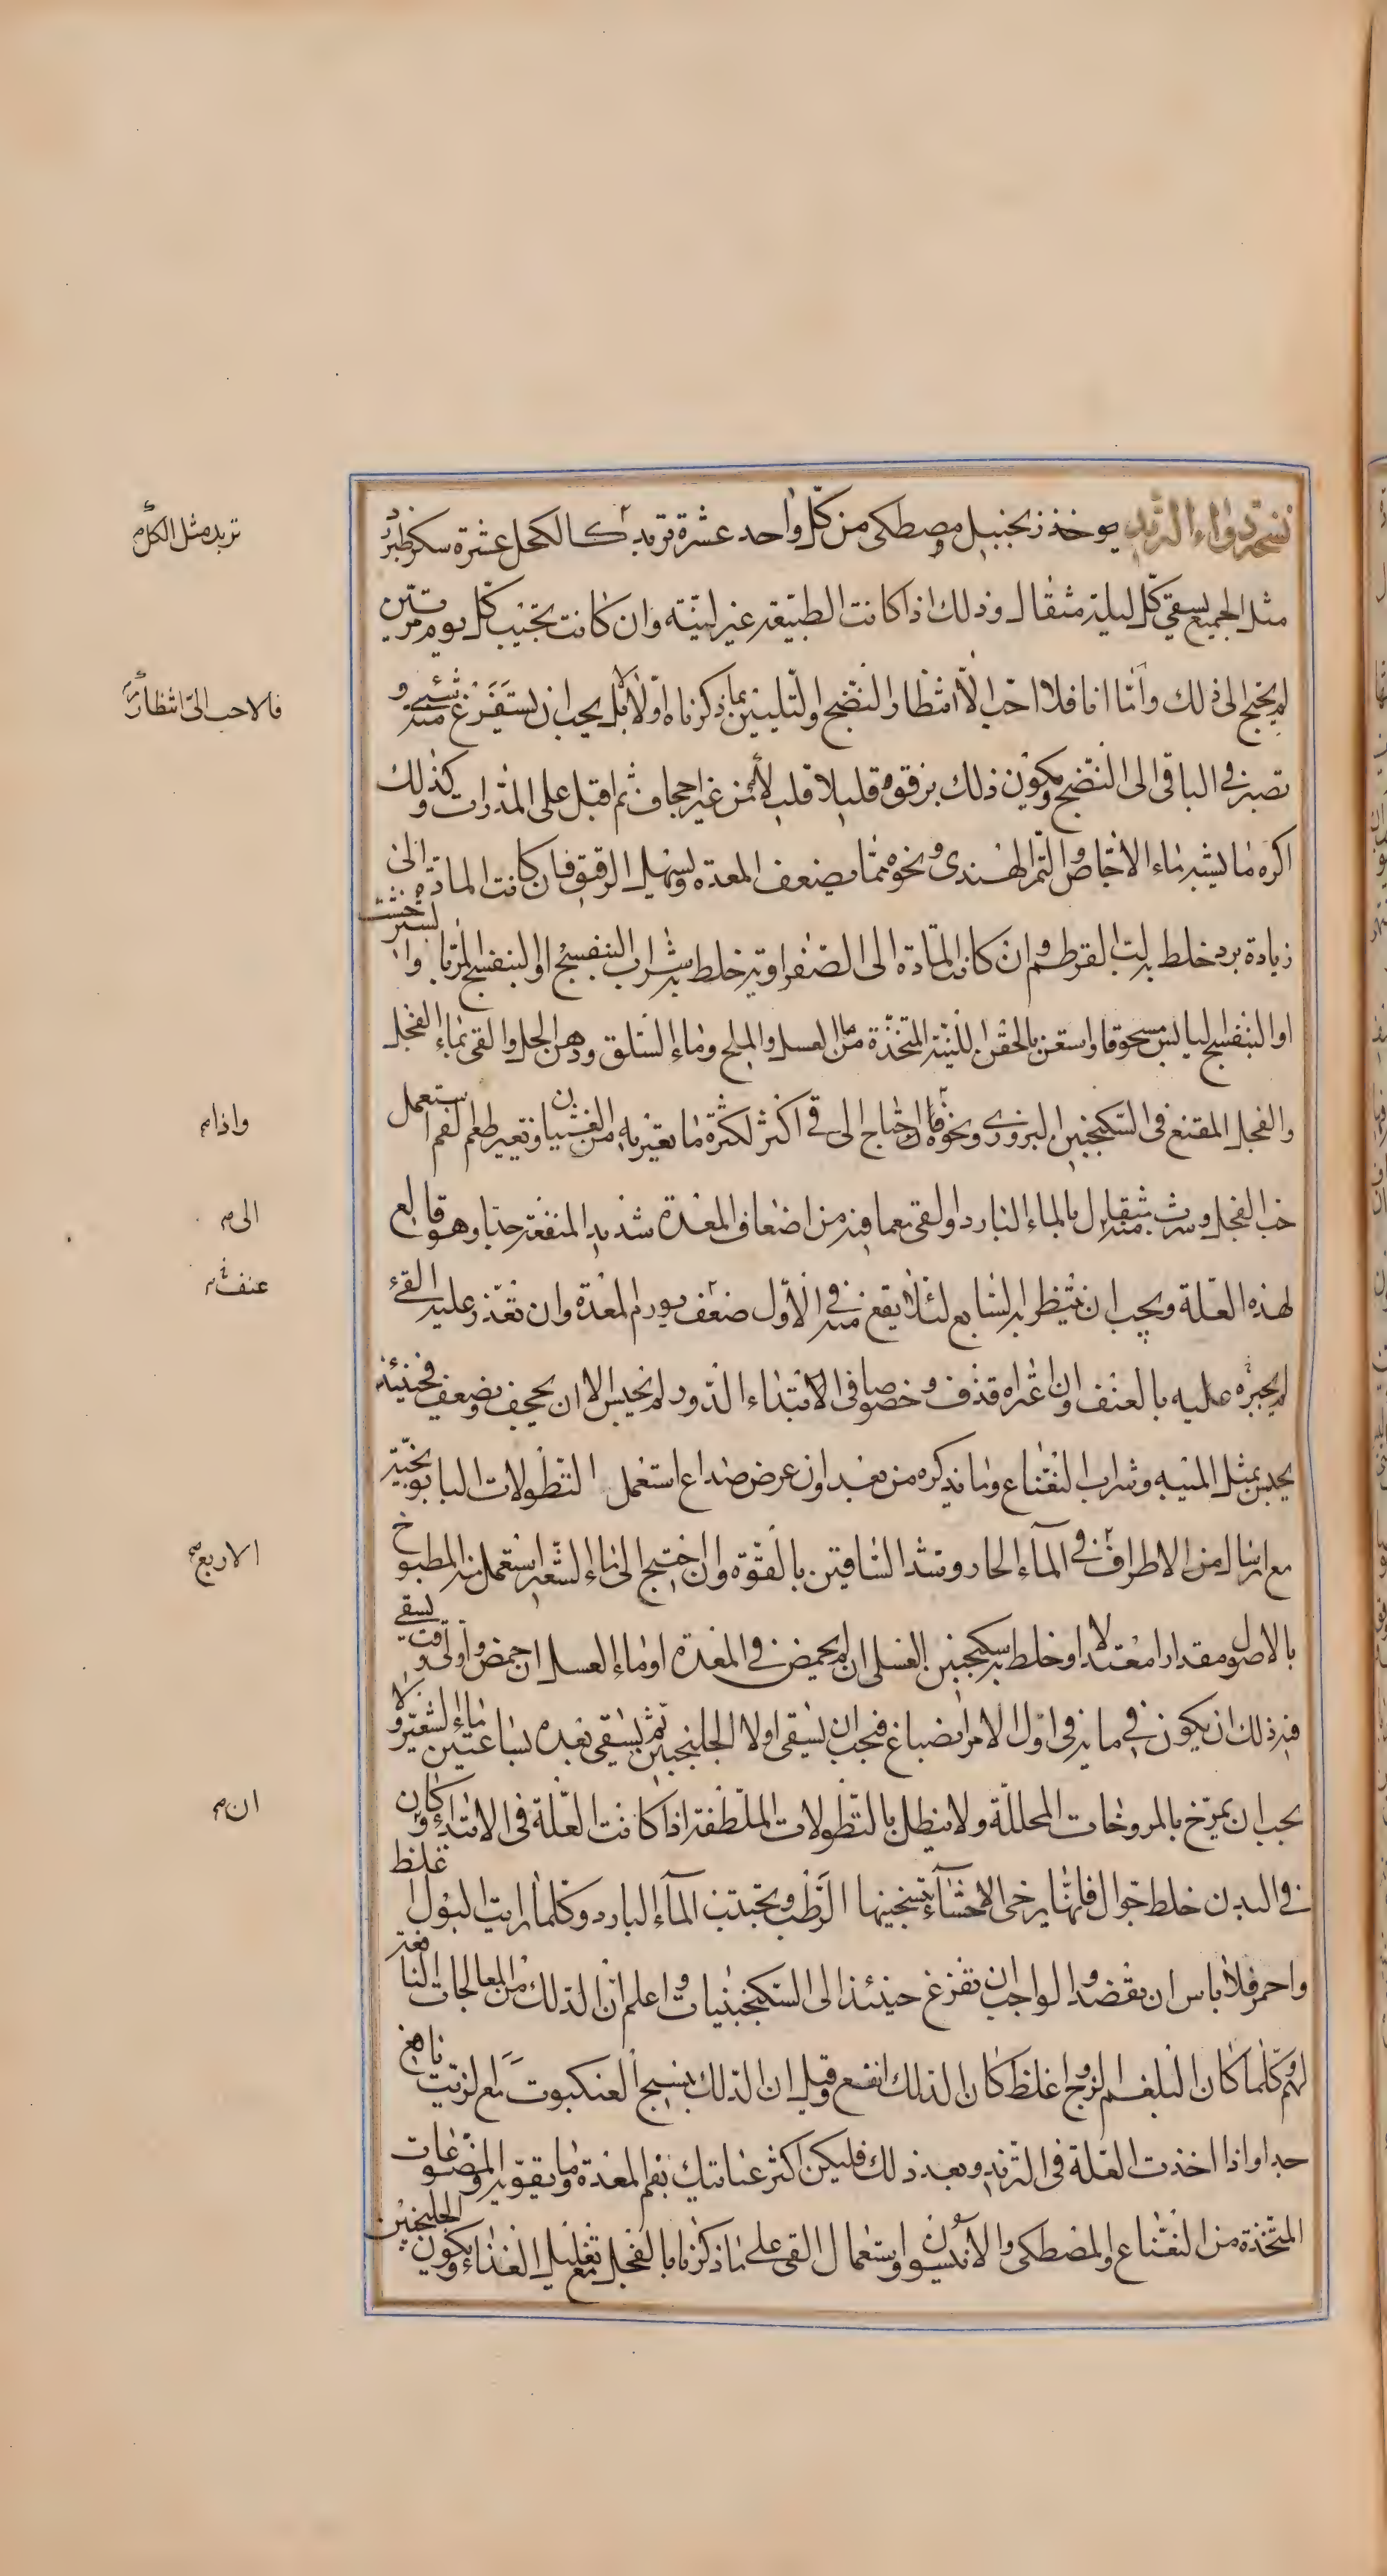 نسخة دواء التربد يوخذ زنجبيل ومصطكى من كل واحد عشرة تربد كالكحل عشرة سكر طبرزد
تربد مثل الكل م
مثل الجميع يسقى كل ليلة مثقال وذلك اذا كانت الطبيعة غير لينة وان كانت تجيب كل يوم مرتين
لم يحتج الى ذلك واما انا فلا احب الا انتظار النضج والتليين بما ذكرناه اولا بل يجب ان يستفرغ منه شيئ و
فلا احب الى انتظار م
تصبر فى الباقى الى النضج ويكون ذلك برقوه قليلا قليلا من غير اجحاف ثم اقبل على المدرات وكذلك
اكره ما يشبه ماء الاجاص والتمر الهندى ونحوه مما يضعف المعدة ويسهل الرقيق فان كانت المادة الى
زيادة برد خلط به لب القرطم وان كانت المادة الى الصفراوية خلط به شراب البنفسج او البنفسج المربا وا لشيرخشت
او البنفسج اليابس مسحوقا واستعن بالحقن اللينة المتخذة من ماء العسل والملح وماء السلق ودهن الحل والقى بماء الفجل
والفجل المقنع فى السكنجبين البزورى ونحوه فان احتاج الى قى اكثر لكثرة ما يعتريه من الغشيان وتغير طعم الفم استعمل
واذا م
حب الفجل وشرب منه مثقال بالماء البارد والقى بعما فيه من اضعاف المعدة شديد المنفعة جدا وهو قالع
الى م
لهذه العلة ويجب ان ينتظر به السابع لئلا يقع منه فى الاول ضعف يورم المعدة وان تعذر عليه القئ
عنف م
لم يجبره عليه بالعنف وان عراه قذف وخصوصا فى الابتداء الدور لم يحبس الا ان يجحف ويضعف فحينئذ
يحبس بمثل الميبه وشراب النعناع وما نذكره من بعد وان عرض صداع استعمل النطولات البابونجية
مع ارسال من الاطراف فى الماء الحار وشد الساقين بالقوة وان احتيج الى ماء الشعير استعمل منه المطبوخ
الاربع م
بالاصول مقدارا معتدلا او خلط به سكنجبين العسلى ان لم يحمض فى المعدة او ماء العسل ان حمض واولى وقت يسقى
فيه ذلك ان يكون فى مايه فى اول الامر انصباغ فيجب ان يسقى اولا الجلنجبين ثم يسقى بعده بساعتين ماء الشعير ولا
يجب ان يمرخ بالمروخات المحللة ولا ينطل بالنطولات الملطفة اذا كانت العلة فى الابتداء وكان
ان م
فى البدن خلط جوال فانها يرخى الاحشاء بتسخينها الرطب وتجتذب الماء البارد وكلما رايت البول غلظ
واحمر فلا باس ان يفصد والواجب ان تفزع حينئذ الى السكنجبينيات واعلم ان الدلك من المعالجات النافعة
لهم وكلما كان البلغم الزوج اغلظ كان الدلك انفع وقيل ان الدلك بنسيج العنكبوت مع الزيت نافع
جدا واذا اخذت العلة فى التزيد وبعد ذلك فليكن اكثر عنايتك بفم المعدة وما يقويه والمضوغات
المتخذة من النعناع والمصطكى والانيسون واستعمال القى على ما ذكرنا بالفجل مع تقليل الغذاء ويكون الجلنجبين